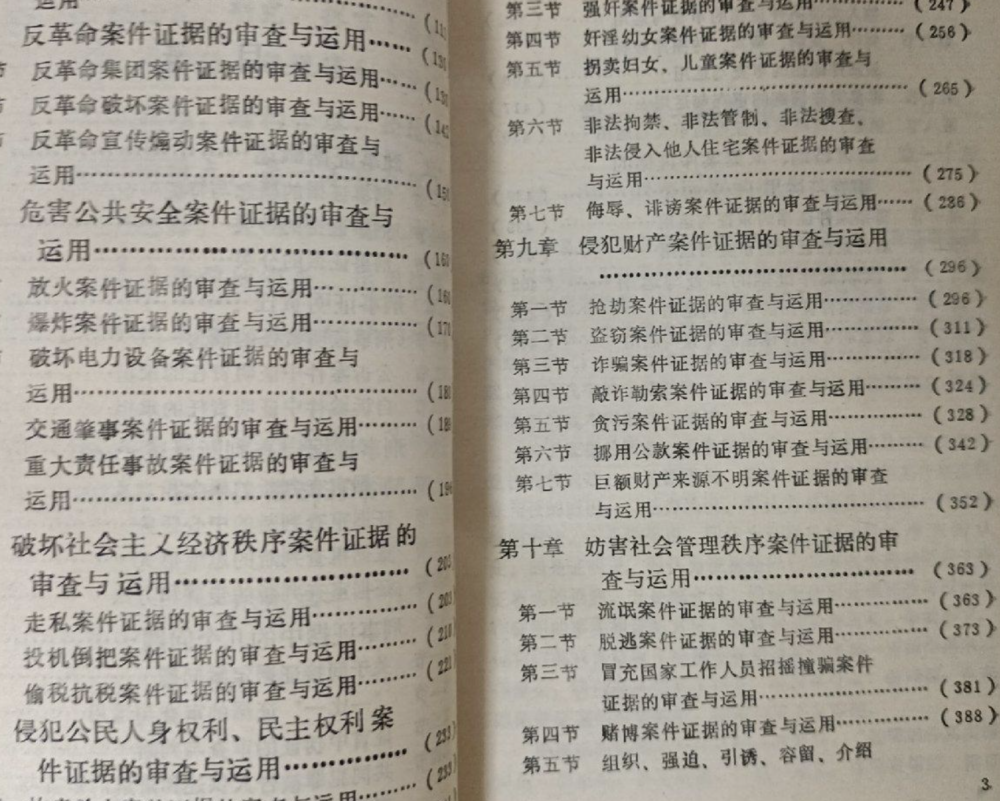 运用
反革命案件证据的审查与运用……
反革命集团案件证据的审查与运用……
反革命破坏案件证据的审查与运用……
反革命宣传煽动案件证据的审查与
运用……
危害公共安全案件证据的审查与
运用……(160
放火案件证据的审查与运用……(160
爆炸案件证据的审查与运用……(171
破坏电力设备案件证据的审查与
运用……
交通肇事案件证据的审查与运用……
重大责任事故案件证据的审查与
运用……
破坏社会主义经济秩序案件证据的
审查与运用……(203
走私案件证据的审查与运用……(203
投机倒把案件证据的审查与运用……(210
偷税抗税案件证据的审查与运用……(221
侵犯公民人身权利、民主权利案
件证据的审查与运用……(233
(233
第三节 强奸案件证据的审查与运用……(247)
第四节 奸淫幼女案件证据的审查与运用……(256)
第五节 拐卖妇女、儿童案件证据的审查与
运用……(265)
第六节 非法拘禁、非法管制、非法搜查、
非法侵入他人住宅案件证据的审查
与运用……(275)
第七节 侮辱、诽谤案件证据的审查与运用……(286)
第九章 侵犯财产案件证据的审查与运用
……(296)
第一节 抢劫案件证据的审查与运用……(296)
第二节 盗窃案件证据的审查与运用……(311)
第三节 诈骗案件证据的审查与运用……(318)
第四节 敲诈勒索案件证据的审查与运用……(324)
第五节 贪污案件证据的审查与运用……(328)
第六节 挪用公款案件证据的审查与运用……(342)
第七节 巨额财产来源不明案件证据的审查
与运用……(352)
第十章 妨害社会管理秩序案件证据的审
查与运用……(363)
第一节 流氓案件证据的审查与运用……(363)
第二节 脱逃案件证据的审查与运用……(373)
第三节 冒充国家工作人员招摇撞骗案件
证据的审查与运用……(381)
第四节 赌博案件证据的审查与运用……(388)
第五节 组织、强迫、引诱、容留、介绍
3